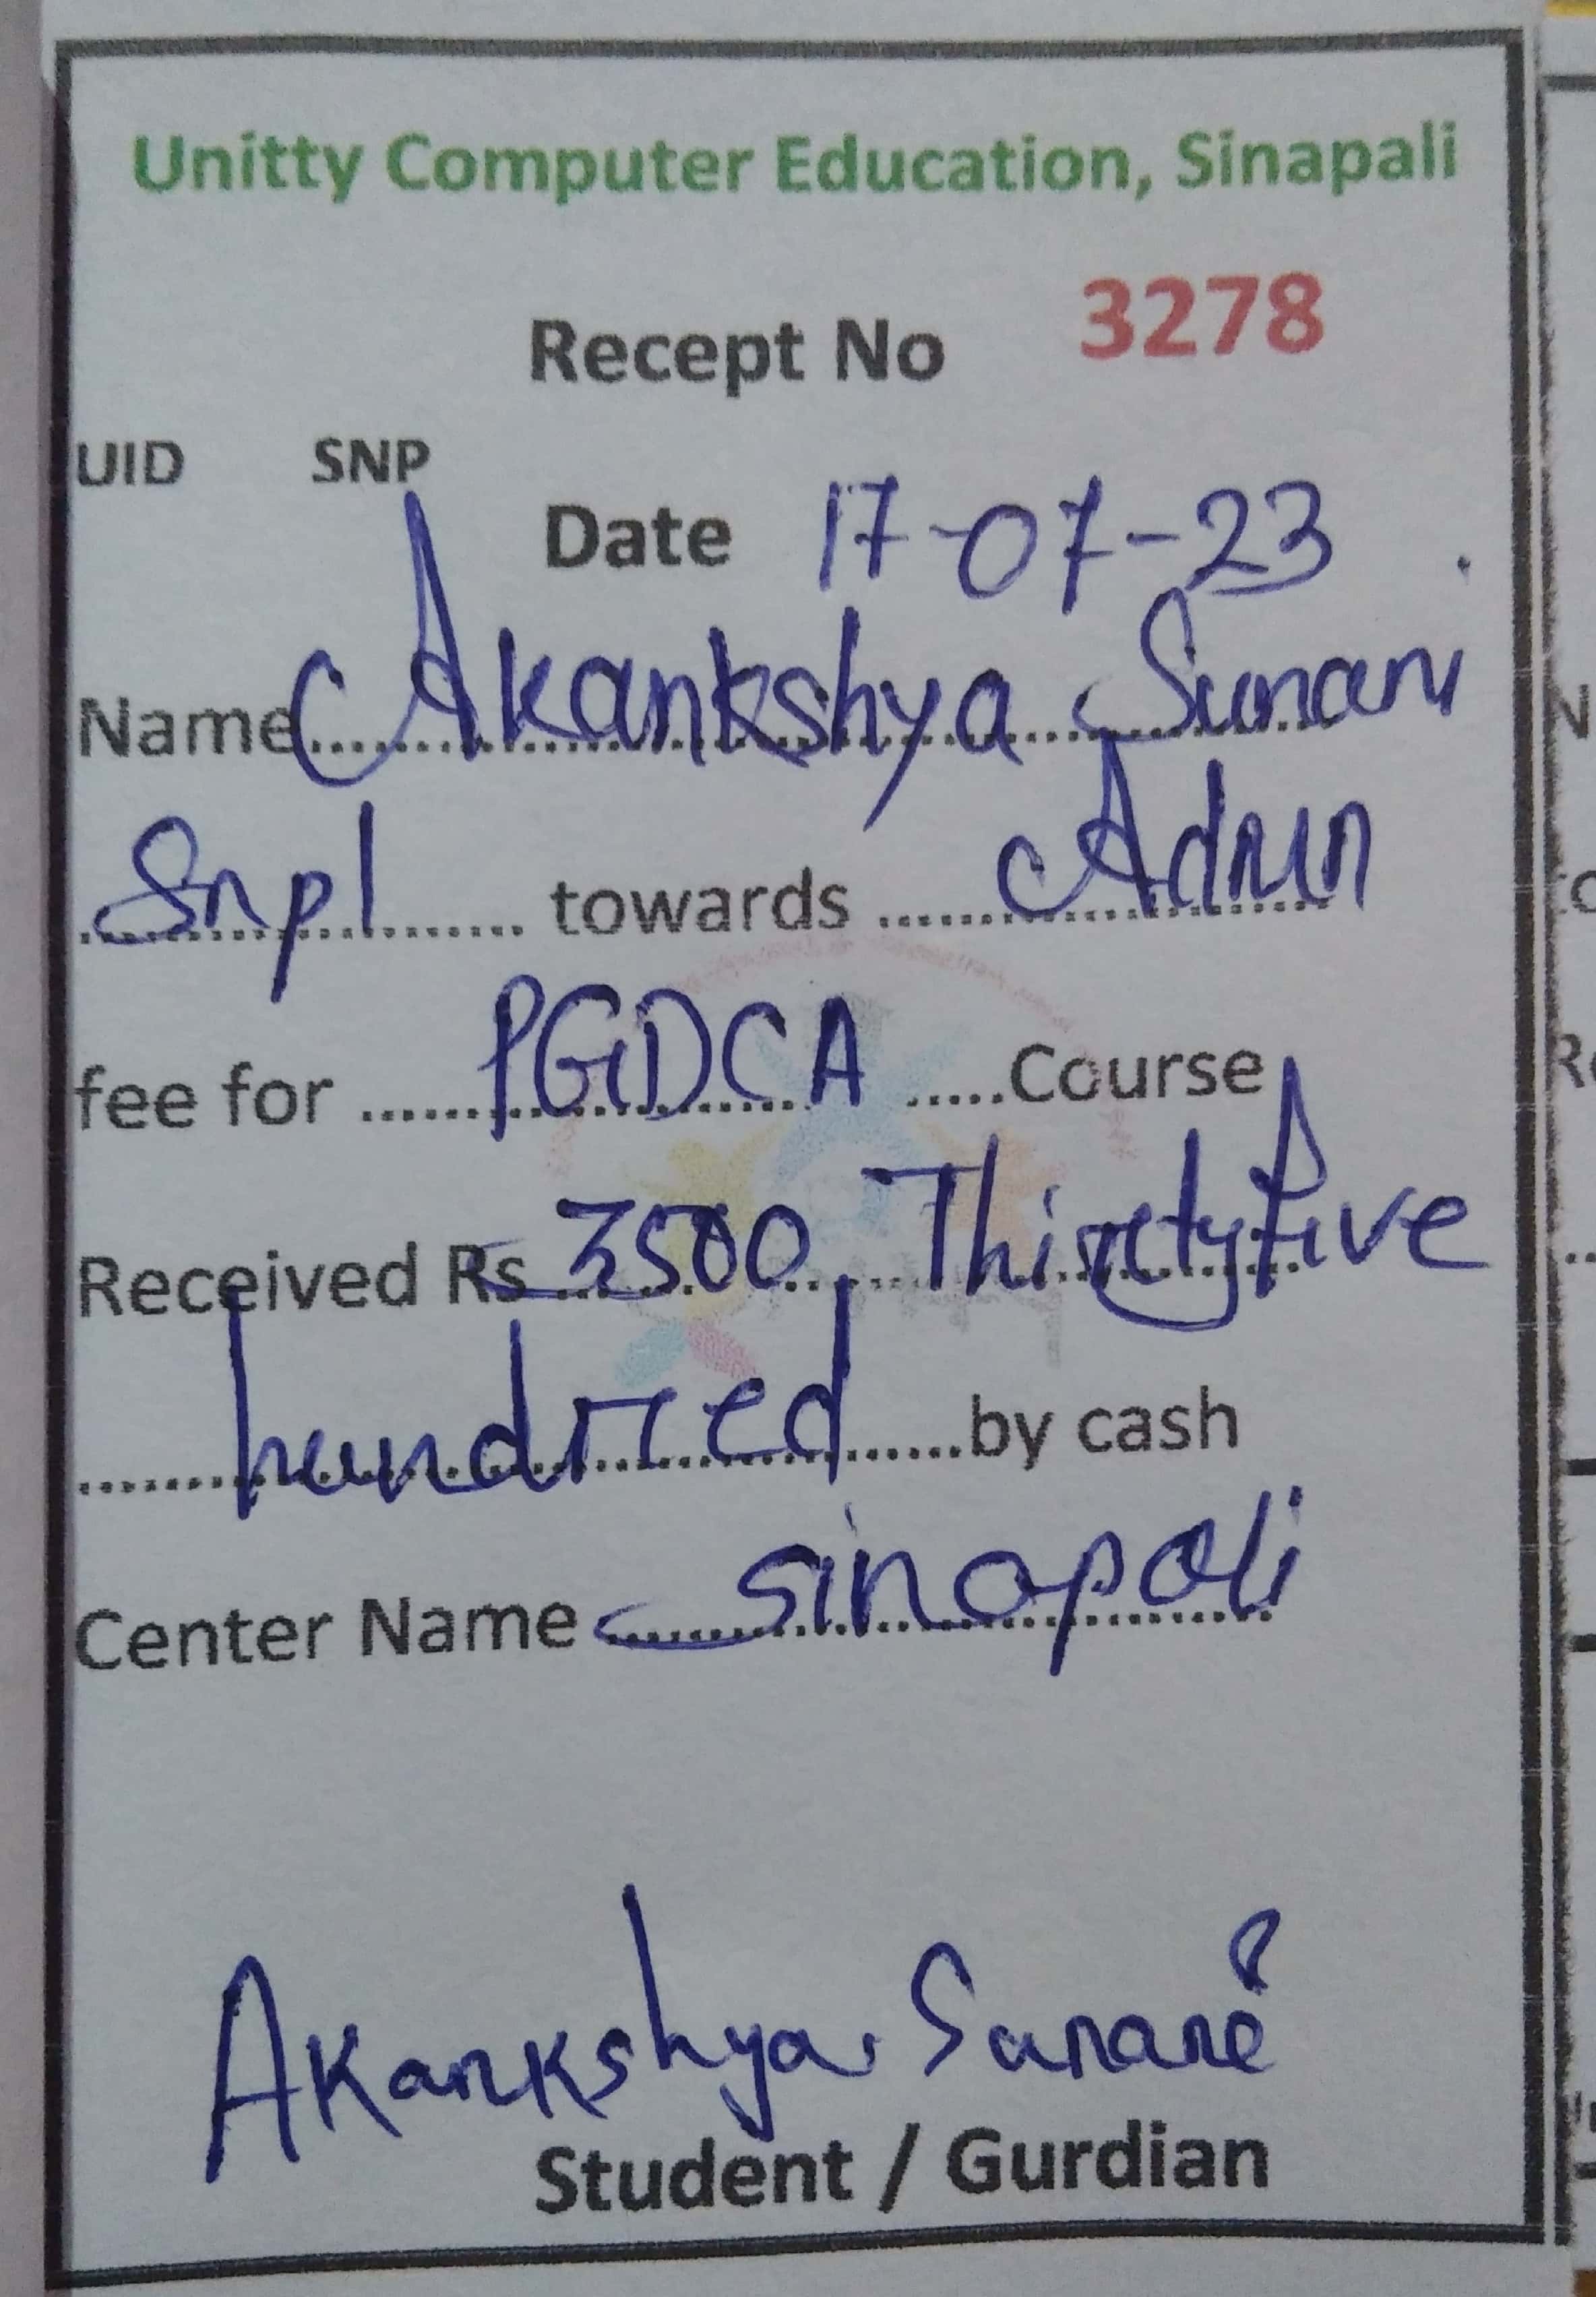 Unitty Computer Education, Sinapali
Recept No 3278
UID SNP
Date 17-07-23
Name Akankshya Sunani
Snpl towards Admn
fee for PGDCA Course
Received Rs 3500 Thirtyfive
hundred by cash
Center Name sinapali
Akankshya Sunani
Student / Gurdian